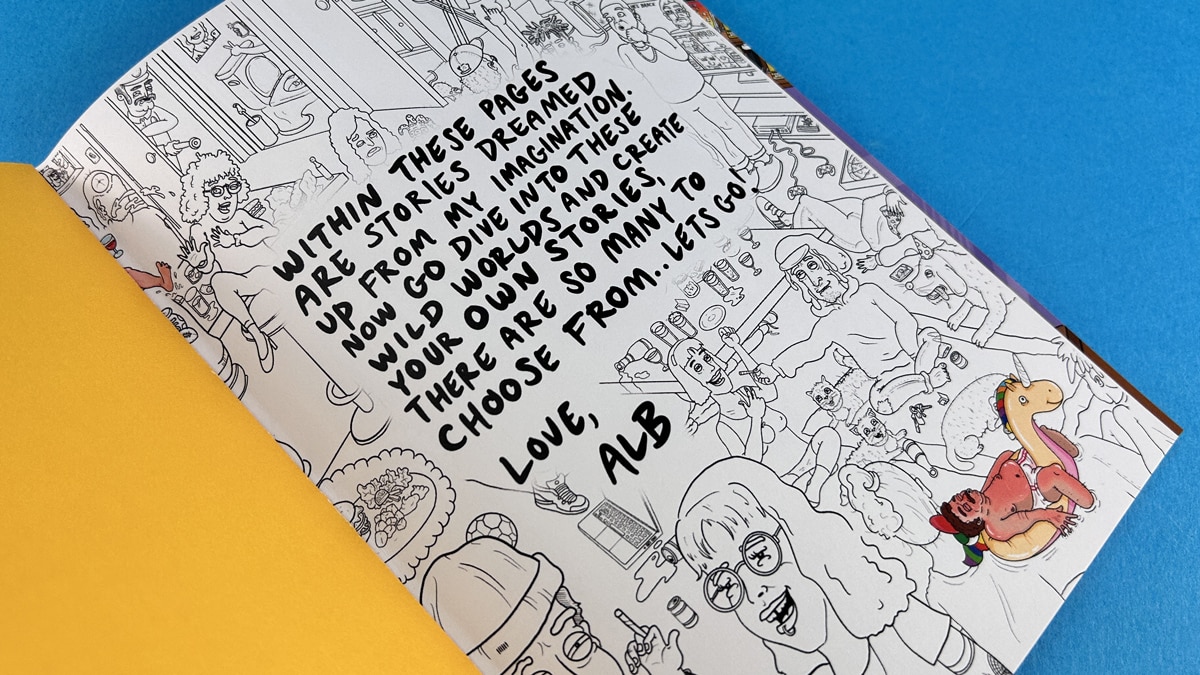 WITHIN THESE PAGES
ARE STORIES DREAMED
UP FROM MY IMAGINATION.
NOW GO DIVE INTO THESE
WILD WORLDS AND CREATE
YOUR OWN STORIES,
THERE ARE SO MANY TO
CHOOSE FROM.. LETS GO!
LOVE,
ALB